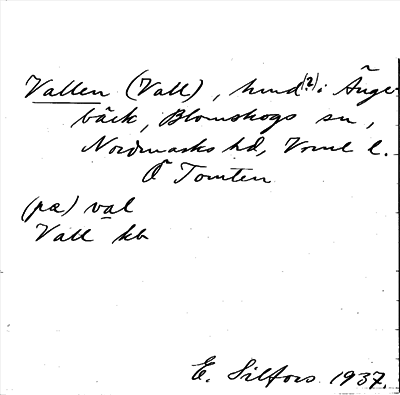 Vallen (Vall), hmd(?) i Ånge-
bäck, Blomskogs sn,
Nordmarks hd, Vrml l.
Ö Tomten
(pæ) val
Vall kb
E. Silfors 1937.